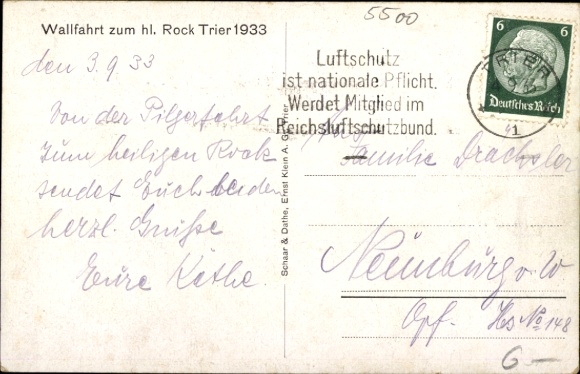 5500
Wallfahrt zum hl. Rock Trier 1933
den 3. 9. 33
Von der Pilgerfahrt
zum heiligen Rock
sendet Euch beiden
herzl. Grüße
Eure Käthe.
Schaar & Dathe, Ernst Klein A. G. Trier
6 6
Deutsches Reich
TRIER
1
Luftschutz
ist nationale Pflicht.
Werdet Mitglied im
Reichsluftschutzbund.
Familie Drachsler
Neunburg v. W
Opf. Hs No 148
6 –